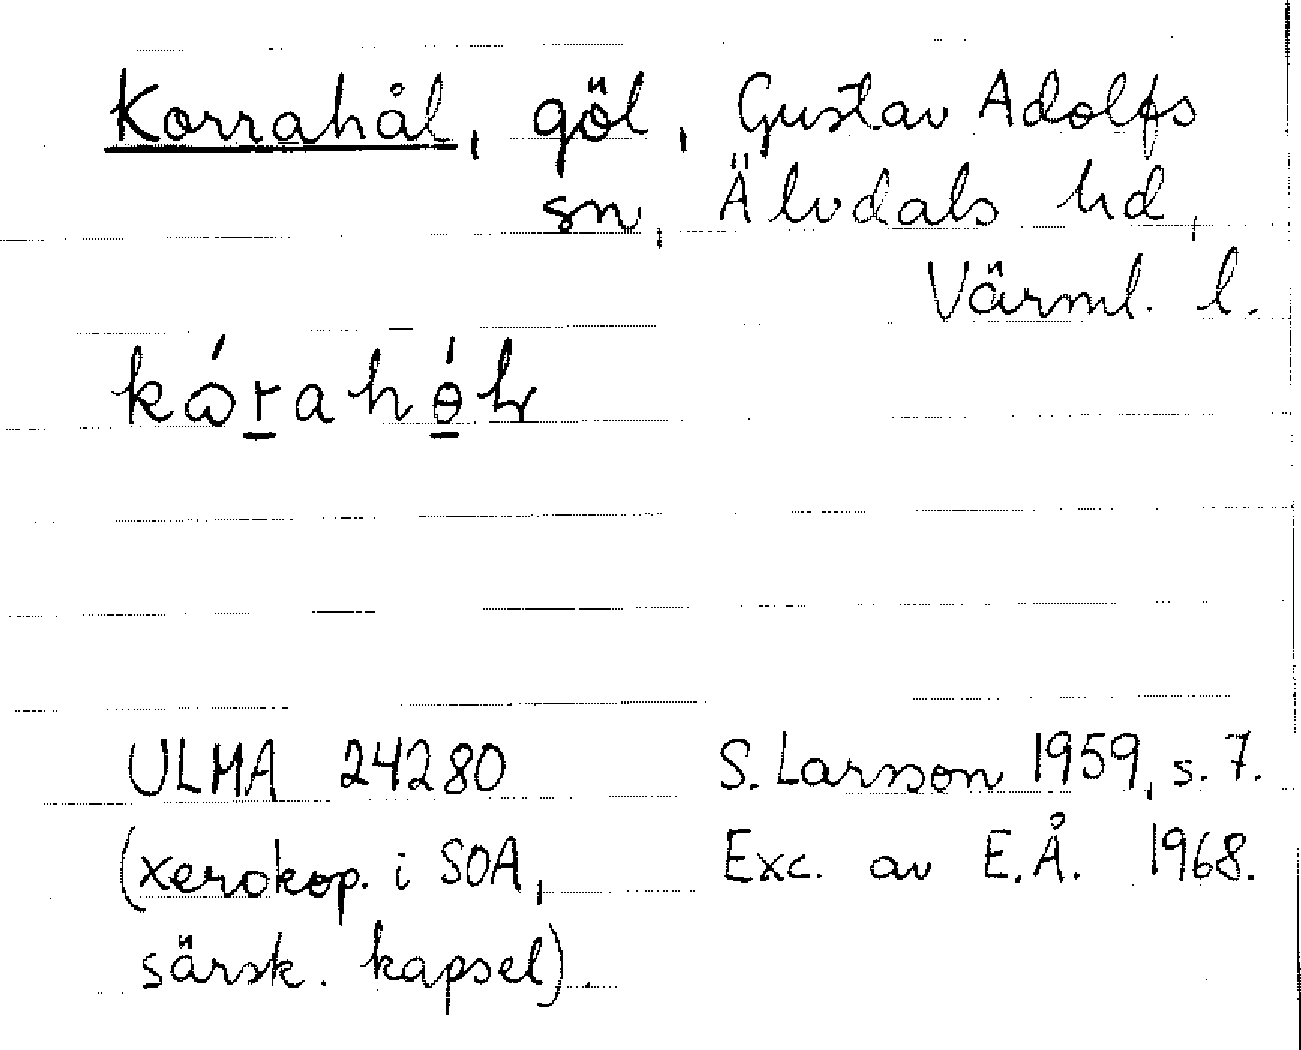 Korrahål, göl, Gustav Adolfs
sn, Älvdals hd,
Värml. l.
ULMA 24280 S. Larsson 1959, s. 7.
(xerokop. i SOA, Exc. av E.Å. 1968.
särsk. kapsel).